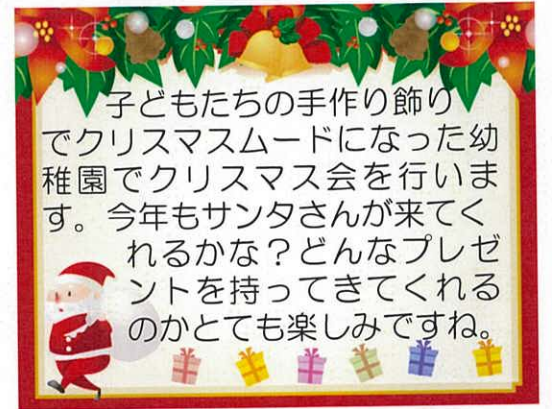 子どもたちの手作り飾り
でクリスマスムードになった幼
稚園でクリスマス会を行いま
す。今年もサンタさんが来てく
れるかな？どんなプレゼ
ントを持ってきてくれる
のかとても楽しみですね。